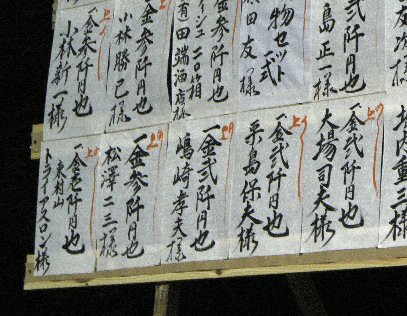 友次様
金弐阡円也
島正一様
物セット一式
田友様
金参阡円也
二〇箱
田端酒店様
金参阡円也
小林勝巳様
上
一金参阡円也
小林新一様
坊内重三様
上
一金弐阡円也
大場司夫様
上
一金弐阡円也
平島保夫様
上
一金弐阡円也
嶋崎孝夫様
上
一金参阡円也
松澤二三様
上
一金壱阡円也
東村山
トライアスロン様